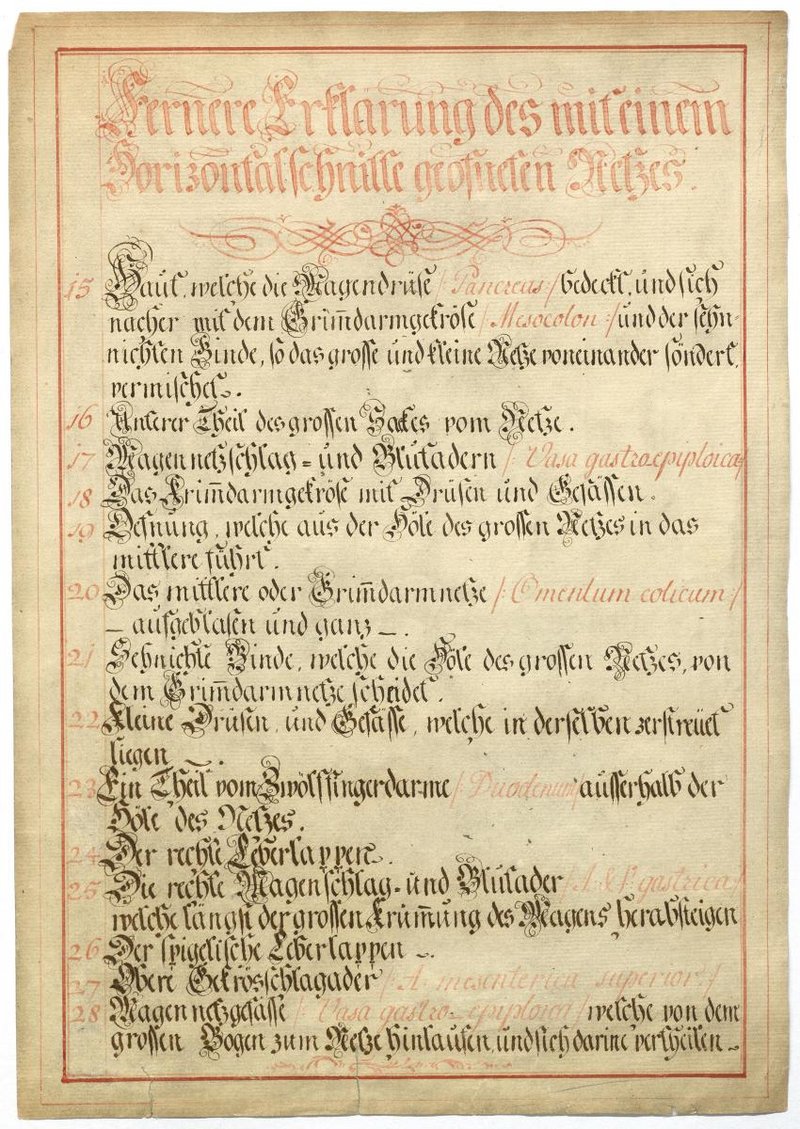 Fernere Erklärung des mit einem
Horizontalschnitte geöfneten Netzes.
15 Haut, welche die Magendrüse /: Pancreas :/ bedeckt, und sich
nacher mit dem Grim̄darmgekröse /: Mesocolon :/ und der sehn-
nichten Binde, so das grosse und kleine Netze voneinander söndert,
vermischet.
16 Unterer Theil des grossen Sackes vom Netze.
17 Magennetzschlag= und Blutadern /: Vasa gastroepiploica :/
18 Das Krim̄darmgekröse mit Drüsen und Gefässen.
19 Oefnung, welche aus der Höle des grossen Netzes in das
mittlere führt.
20 Das mittlere oder Grim̄darmnetze /: Omentum colicum :/
– ausgeblasen und ganz –.
21 Sehnichte Binde, welche die Höle des grossen Netzes, von
dem Grim̄darmnetze scheidet.
22 Kleine Drüsen, und Gefässe, welche in derselben zerstreüet
liegen –.
23 Ein Theil vom Zwölffingerdarme /: Duodenum :/ ausserhalb der
Höle des Netzes.
24 Der rechte Leberlappen.
25 Die rechte Magenschlag= und Blutader /: A. & V. gastrica :/
welche längst der grossen Krüm̄ung des Magens herabsteigen
26 Der spigelische Leberlappen –.
27 Obere Gekrösschlagader /: A. mesenterica superior :/
28 Magennetzgefässe /: Vasa gastro-epiploica :/ welche von dem
grossen Bogen zum Netze hinlaufen, und sich darine vertheilen –